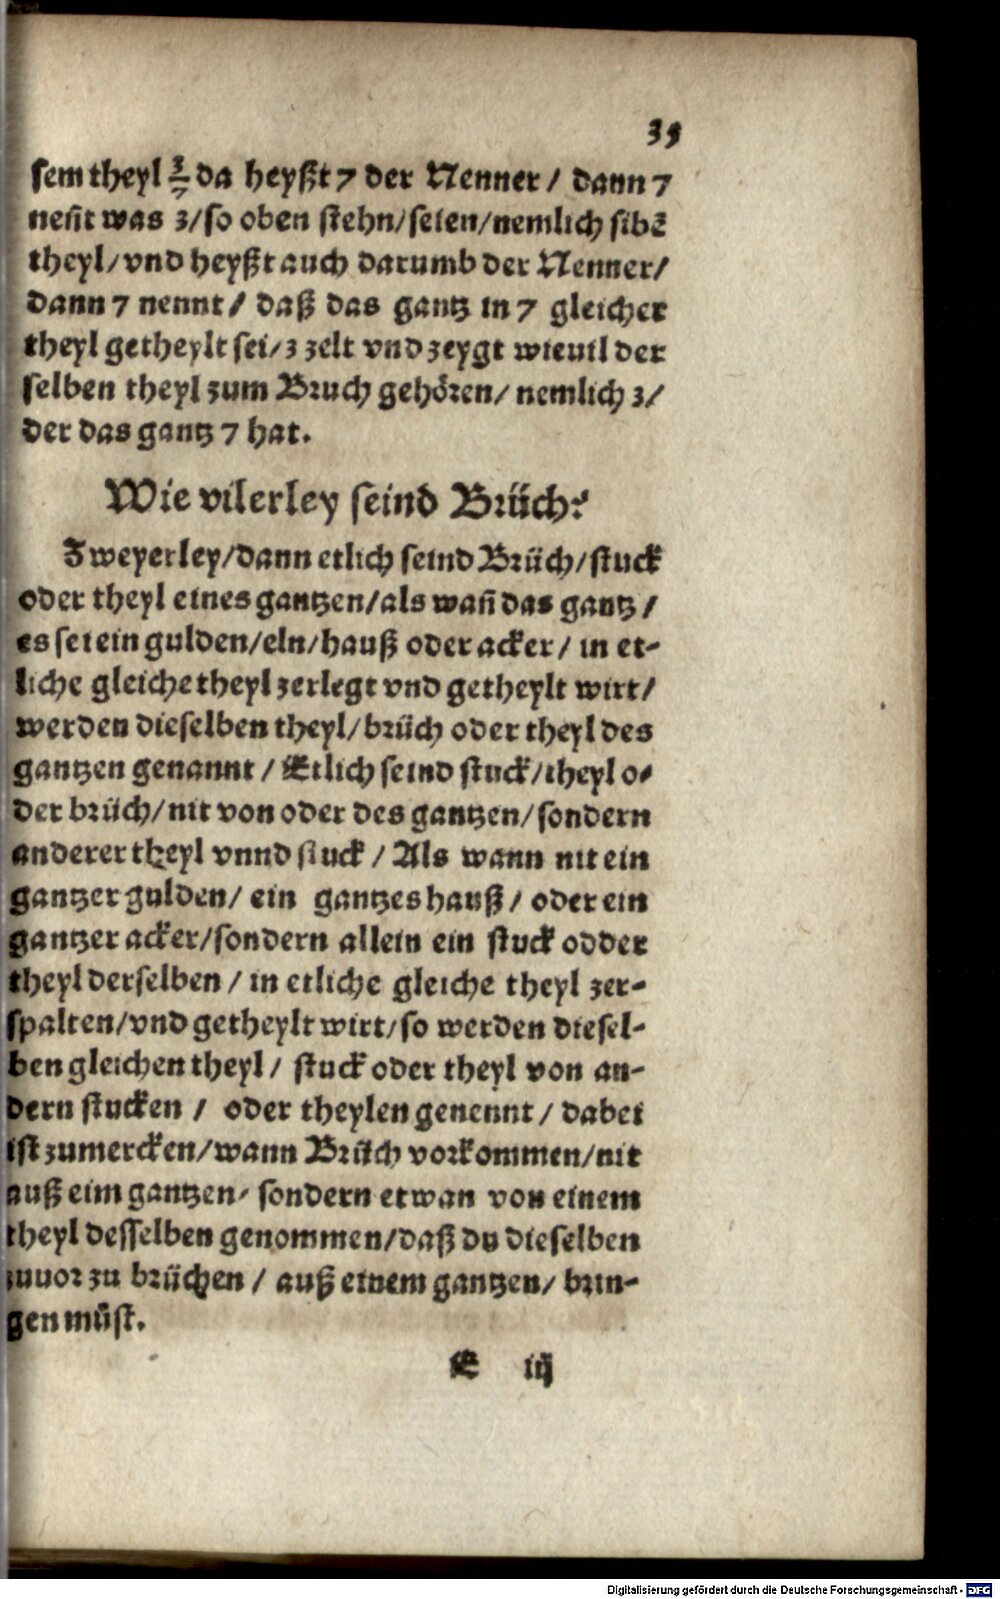 35
sem theyl 3/7 da heyßt 7 der Nenner / dann 7
neñt was 3/so oben stehn/seien/nemlich sibē
theyl/vnd heyßt auch darumb der Nenner/
dann 7 nennt / daß das gantz in 7 gleicher
theyl getheylt sei/3 zelt vnd zeygt wieuil der
selben theyl zum Bruch gehören/ nemlich 3/
der das gantz 7 hat.
Wie vilerley seind Brüch?
Zweyerley/dann etlich seind Brüch/stuck
oder theyl eines gantzen/als wañ das gantz /
es sei ein gulden/eln/hauß oder acker / in et-
liche gleiche theyl zerlegt vnd getheylt wirt/
werden dieselben theyl/brüch oder theyl des
gantzen genannt / Etlich seind stuck/theyl o-
der brüch/nit von oder des gantzen/sondern
anderer theyl vnnd stuck / Als wann nit ein
gantzer gulden/ ein gantzes hauß / oder ein
gantzer acker/sondern allein ein stuck odder
theyl derselben / in etliche gleiche theyl zer-
spalten/vnd getheylt wirt/so werden diesel-
ben gleichen theyl / stuck oder theyl von an-
dern stucken / oder theylen genennt / dabei
ist zumercken/wann Brüch vorkommen/nit
auß eim gantzen/ sondern etwan von einem
theyl desselben genommen/daß du dieselben
zuuor zu brüchen / auß einem gantzen/ brin-
gen müst.
E iij
Digitalisierung gefördert durch die Deutsche Forschungsgemeinschaft - DFG